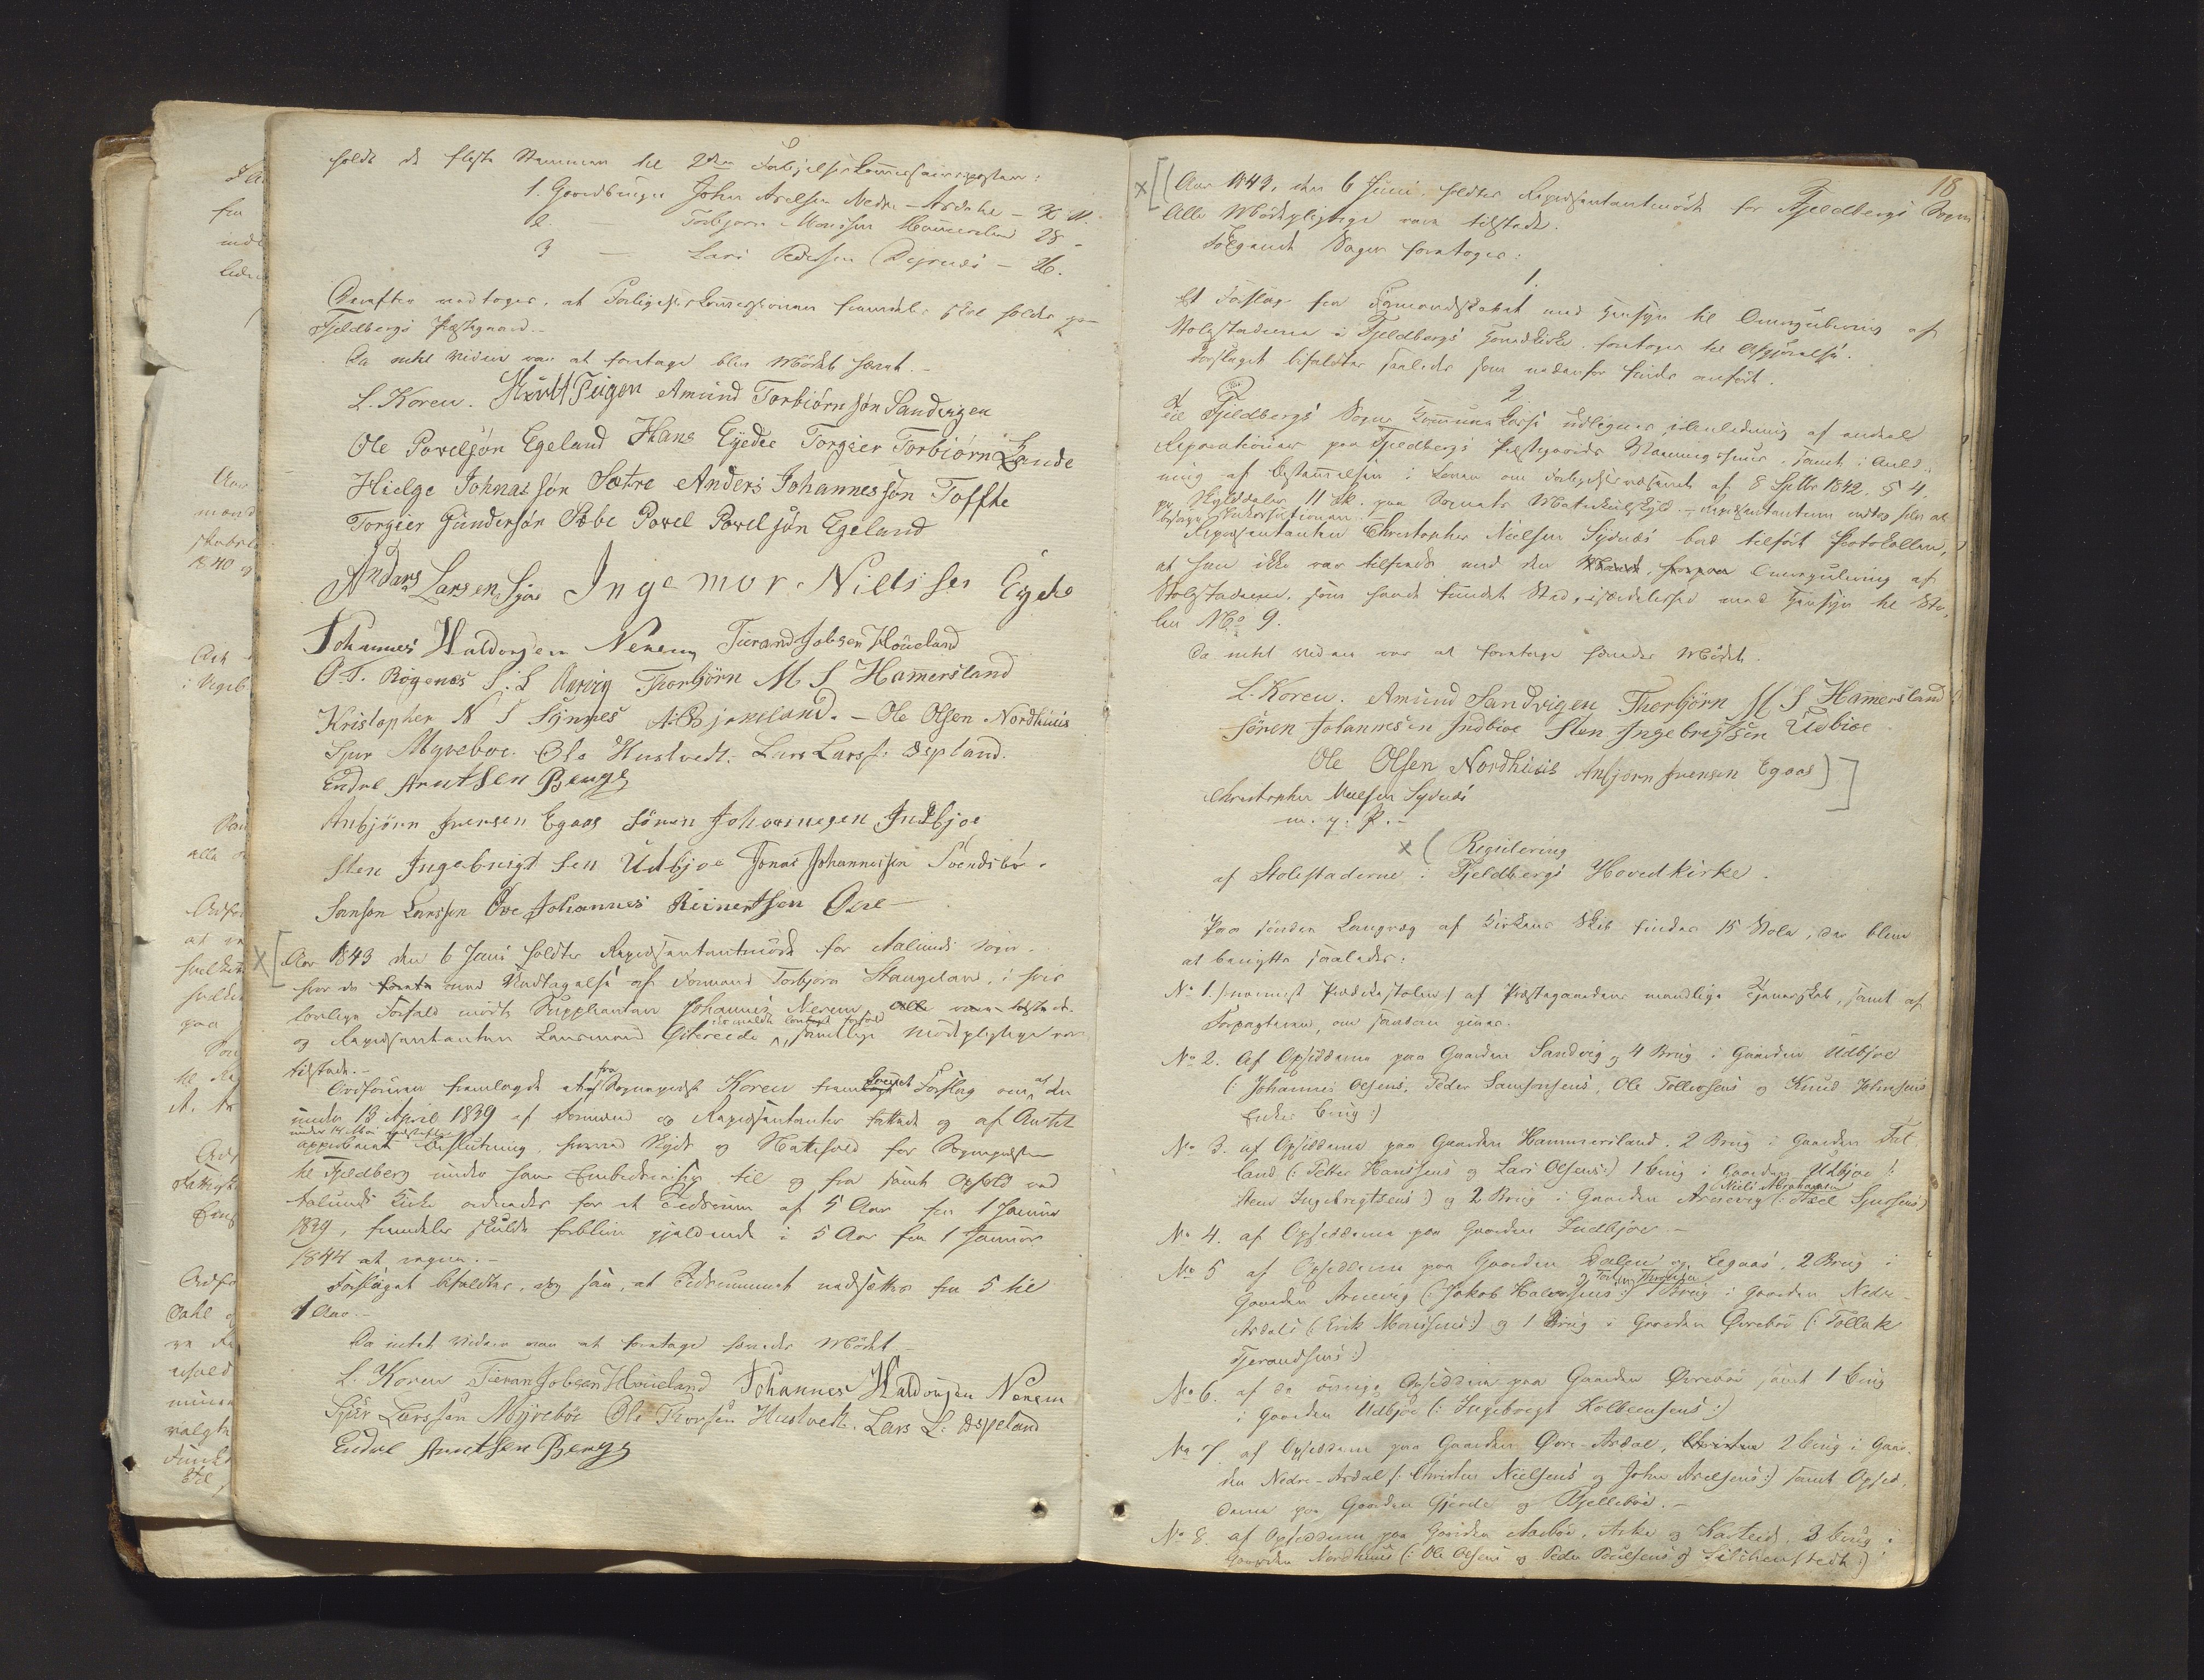 holdt de fleste Stemmer til 2den Forligelseskommissairposten:
1. Gaardbruger John Axelsen Nedre-Ardahl - 30 St.
2. — Torbjørn Monssen Hammersland 28 -
3 — Lars Pedersen - 26.
Derefter vedtoges, at Forligelseskommissionen fremdeles skal holdes paa
Fjeldbergs Præstegaard.-
Da intet videre var at foretage blev Mødet hævet.-
L. Koren. Amund Torbiørnsøn Sandvigen
Ole Povelsøn Egeland Hans Eyede Torgier Torbiørns Lande
Hielge Johnas søn Sætre Anders Johannessøn Toffte
Torgier Gundersøn Søbe Povel Povelsøn Egeland
Anders Larsen Sjoe Ingemor Nielssen Eyde
Johannes Haldorsen Nerem Tierand Jobsen Høueland
O.T. Røgenes S. L. Aarvig Thorbjørn M S Hamersland
Kristopher N S Synnes Ole Olsen Nordhuus
Sjur Myreboe. Ole Hustvedt. Lars Larss: Espland.
Endre Arntsen Berge
Anbjørn Iversen Egaas Søren Johannesen Indbjoe
Sten Ingebrigtsen Udbjoe Jonas Johannessen Svendsbøe.
Samson Larssen Øve Johannes Reinertsen
Aar 1843 den 6 Juni holdtes Repræsentantmøde for Aalunds Sogn
hvor da med Undtagelse af Formand Torbjørn Stangeland, i hvis
lovlige Forfald mødte Suppleanten Johannes Nerem, alle vare tilstede.
og Repræsentanten Lensmand Østereide samtlige Mødepligtige vare
tilstede.-
Ordføreren fremlagde et fra Sogneprest Koren Forslag om, at den
under 13 April 1839 af Formænd og Repræsentanter fattede og af Amtet
under 14 Mai approberet Beslutning, hvorved Skyds og Natteophold for Sognepresten
til Fjeldberg under hans Embedsreiser til og fra samt Ophold ved
Aalunds Kirke ordnedes for et Tidsrum af 5 Aar fra 1 Januar
1839, fremdeles skulde forblive gjældende i 5 Aar fra 1 Januar
1844 at regne.-
Forslaget bifaldtes, dog saa, at Tidsrummet nedsættes fra 5 til
1 Aar.-
Da intet videre var at foretage hævedes Mødet.-
L. Koren Tieran Jobsen Høueland Johannes Haldorsen Nerem
Sjur Larssen Myrebøe Ole Thorsen Hustvedt. Lars L: Espeland
Endre Arntsen Berge
18
Aar 1843, den 6 Juni holdtes Repræsentantmøde for Fjeldbergs Sogn
Alle Mødepligtige vare tilstede.
Følgende Sager foretoges:
1.
Et Forslag fra Formandskabet med Hensyn til Omregulering af
Stolestaderne i Fjeldbergs Hovedkirke foretoges til Afgjørelse.
Forslaget bifaldtes saaledes som nedenfor findes anført.
2
At til Fjeldbergs Sogns Kommunekasse udlignes i Anledning af endeel
Reparationer paa Fjeldbergs Præstegaards Vaaningshuus, samt i Anled-
ning af Bestemmelsen i Loven om Forligelsesvæsenet af 8 Septbr 1842, § 4.
pr Skylddaler 11 sk. paa Sognets Matrikulskyld. - Repræsentanterne vedtog selv at
besørge Inkassationen.
Repræsentanten Christopher Nielsen Sydnæs bad tilført Protokollen,
at han ikke var tilfreds med den Omregulering af
Stolestaderne, som havde fundet Sted, især med Hensyn til Sto-
len No 9.
Da intet videre var at foretage hævedes Mødet.
L. Koren. Amund Sandvigen Thorbjørn M S Hamersland
Søren Johannesen Indbioe Sten Ingebrigtsen Udbioe
Ole Olsen Nordhuus Anbjørn Ivensen Egaas
Christopher Nielsen Sydnæs
m. p. P.-
Regulering
af Stolestaderne i Fjeldbergs Hovedkirke.
Paa søndre Langvæg af Kirkens Skib findes 15 Stole, der bleve
at benytte saaledes:
No 1. /: nærmest Prædikestolen / af Præstegaardens mandlige Tjenerskab, samt af
Forpagteren, om saadan gives.
No 2. Af Opsidderne paa Gaarden Sandvig og 4 Brug i Gaarden Udbjoe
(: Johannes Olsens, Peder Samsonsens, Ole Tollevsens og Knud Johnsens
Enkes Brug :)
No 3. af Opsidderne paa Gaarden Hammersland, 2 Brug i Gaarden
land (: Petter Hanssens og Lars Olsens:) 1 Brug i Gaarden Udbjoe (:
Sten Ingebrigtsens:) og 2 Brug i Gaarden Arnevig (: Niels Abrahamsen Axel Sjursens)
No 4. af Opsidderne paa Gaarden Indbjoe -
No 5 af Opsidderne paa Gaarden Dalen og Eegaas, 2 Brug i
Gaarden Arnevig (: Jakob Halvorsens :) 1 Brug i Gaarden Nedre-
Ardals (: Erik Monssens:) og 1 Brug i Gaarden Øvrebø (: Tollak
Tjerandsens:)
No 6. af de øvrige Opsiddere paa Gaarden Øvrebø samt 1 Brug
i Gaarden Udbjoe (: Ingebrigt Kolbeensens:)
No 7. af Opsidderne paa Gaarden Øvre-Ardal, Christen 2 Brug i Gaar-
den Nedre-Ardal (: Christen Nielsens og John Axelsens:) samt Opsid-
derne paa Gaarden Gjerde og Kjellebøe.-
No 8. af Opsidderne paa Gaarden Aarbøe, Aske og Kaateid, 3 Brug i
Gaarden Nordhuus (: Ole Olsens og Peder Poulsens og :)